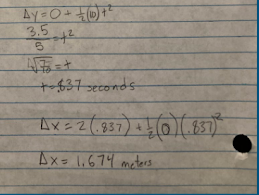 Δy = 0 + 1/2(10)t²
3.5/5 = t²
√7/10 = t
t = .837 seconds
Δx = 2(.837) + 1/2(0)(.837)²
Δx = 1.674 meters